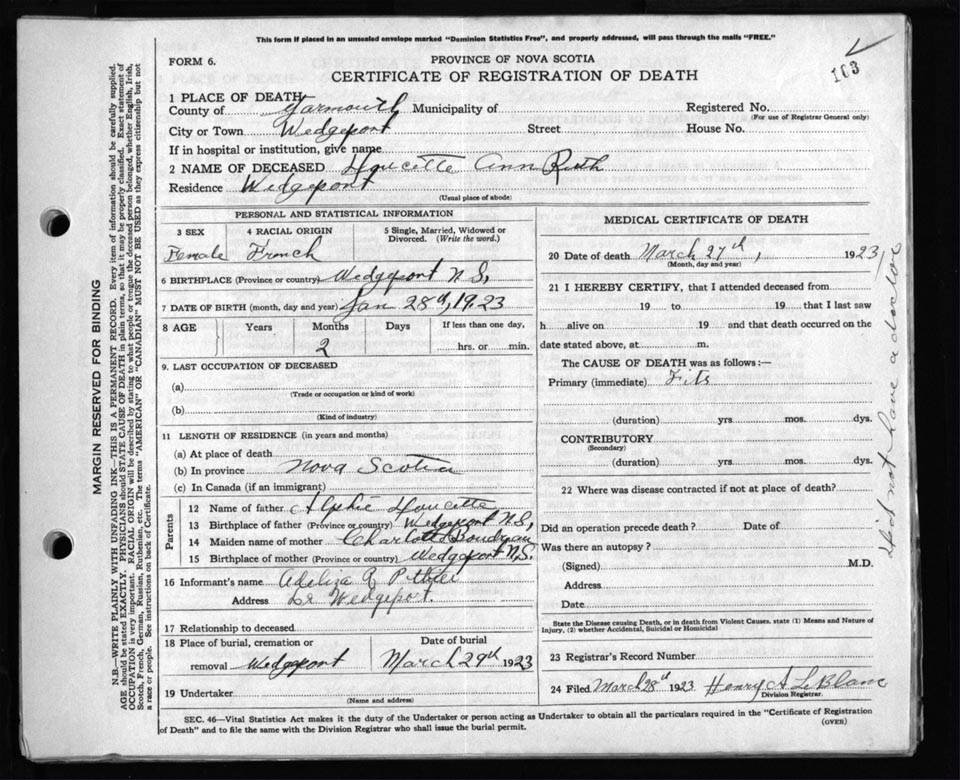 This form if placed in an unsealed envelope marked "Dominion Statistics Free", and properly addressed, will pass through the mails "FREE."
FORM 6.
PROVINCE OF NOVA SCOTIA
CERTIFICATE OF REGISTRATION OF DEATH
103
1 PLACE OF DEATH
County of Yarmouth Municipality of Registered No.
(For use of Registrar General only)
City or Town Wedgeport Street House No.
If in hospital or institution, give name
2 NAME OF DECEASED Doucette Ann Ruth
Residence Wedgeport
(Usual place of abode)
PERSONAL AND STATISTICAL INFORMATION
3 SEX 4 RACIAL ORIGIN 5 Single, Married, Widowed or Divorced. (Write the word.)
Female French
6 BIRTHPLACE (Province or country) Wedgeport N.S,
7 DATE OF BIRTH (month, day and year) Jan 28th, 1923
8 AGE Years Months Days If less than one day,
2 hrs. or min.
9. LAST OCCUPATION OF DECEASED
(a)
(Trade or occupation or kind of work)
(b)
(Kind of industry)
11 LENGTH OF RESIDENCE (in years and months)
(a) At place of death
(b) In province Nova Scotia
(c) In Canada (if an immigrant)
Parents
12 Name of father Alphie Doucette
13 Birthplace of father (Province or country) Wedgeport N.S,
14 Maiden name of mother Charlotte Boudreau
15 Birthplace of mother (Province or country) Wedgeport N.S.
16 Informant's name Adeliza
Address Lr Wedgeport.
17 Relationship to deceased
18 Place of burial, cremation or removal Wedgeport
Date of burial March 29th 1923
19 Undertaker
(Name and address)
MEDICAL CERTIFICATE OF DEATH
20 Date of death March 27th, 1923
(Month, day and year)
21 I HEREBY CERTIFY, that I attended deceased from
19 to 19 that I last saw
h alive on 19 and that death occurred on the
date stated above, at m.
The CAUSE OF DEATH was as follows:—
Primary (immediate) Fits
(duration) yrs. mos. dys.
CONTRIBUTORY
(Secondary)
(duration) yrs. mos. dys.
22 Where was disease contracted if not at place of death?
Did an operation precede death? Date of
Was there an autopsy?
(Signed) M.D.
Address
Date
State the Disease causing Death, or in death from Violent Causes, state (1) Means and Nature of
Injury, (2) whether Accidental, Suicidal or Homicidal
23 Registrar's Record Number
24 Filed March 28th 1923 Henry A LeBlanc
Division Registrar.
did not have a doctor
SEC. 46—Vital Statistics Act makes it the duty of the Undertaker or person acting as Undertaker to obtain all the particulars required in the "Certificate of Registration
of Death" and to file the same with the Division Registrar who shall issue the burial permit.
(OVER)
MARGIN RESERVED FOR BINDING
N.B.—WRITE PLAINLY WITH UNFADING INK—THIS IS A PERMANENT RECORD. Every item of information should be carefully supplied.
AGE should be stated EXACTLY. PHYSICIANS should STATE CAUSE OF DEATH in plain terms, so that it may be properly classified. Exact statement of
OCCUPATION is very important. RACIAL ORIGIN will be described by stating to what people or tongue the deceased person belonged, whether English, Irish,
Scotch, French, German, Russian, Ruthenian, etc. The terms "AMERICAN" OR "CANADIAN" MUST NOT BE USED as they express citizenship but not
a race or people. See instructions on back of Certificate.